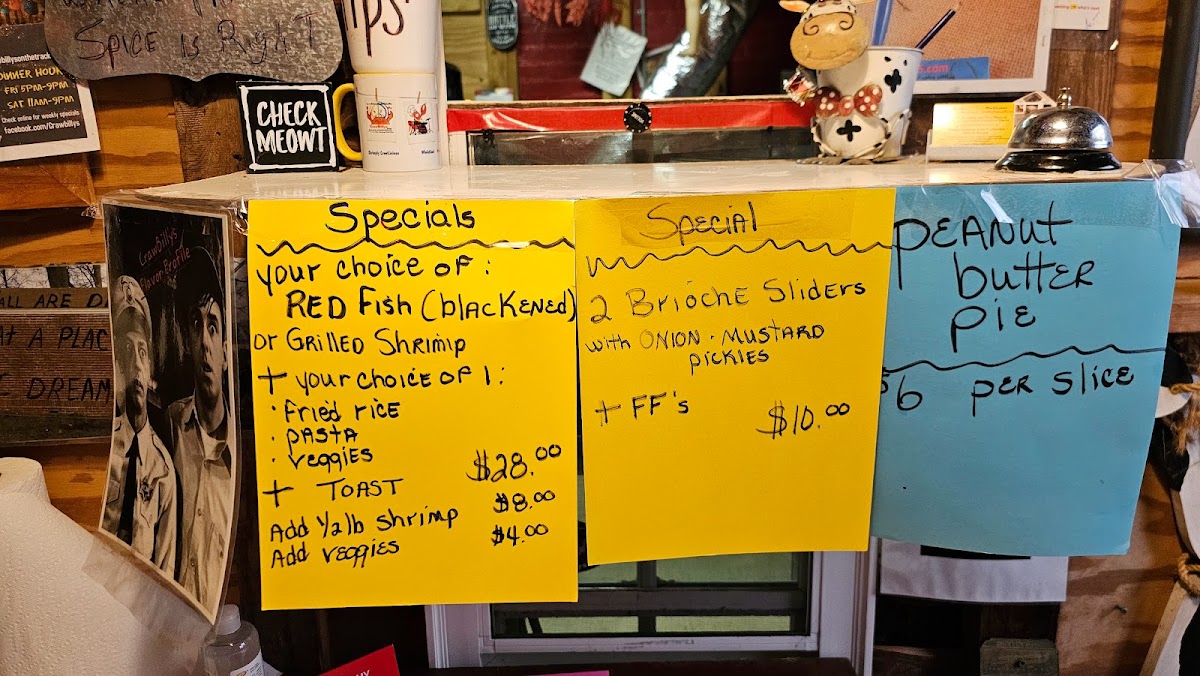 SPICE is RigHT
billysonthetrack
DINNER HOUR
FRI 5PM-9PM
SAT 11AM-9PM
Check online for weekly specials
facebook.com/Crawbillys
CHECK
MEOWT
ips
Crawbillys
Flavor Profile
ALL ARE
AT A PLAC
DREAM
Specials
your choice of:
RED Fish (blacKened)
or Grilled Shrimp
+ your choice of 1:
· fried rice
· pasta
· veggies
$28.00
+ TOAST
Add 1/2lb shrimp $8.00
Add veggies $4.00
Special
2 Brioche Sliders
with ONION · MUSTARD
PICKLES
+ FF's $10.00
PEANUT
butter
pie
$6 per slice